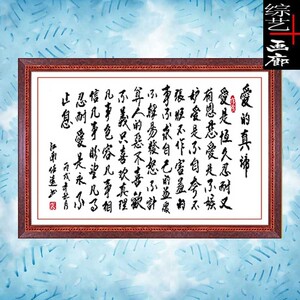 综艺
画廊
愛的真諦
愛是恒久忍耐又
有恩慈愛是不嫉
妒愛是不自夸不
張狂不作害羞的
事不求自己的益處
不輕易發怒不計
算人的惡不喜歡
不義只喜歡真理
凡事包容凡事相
信凡事盼望凡事
忍耐愛是永不
止息